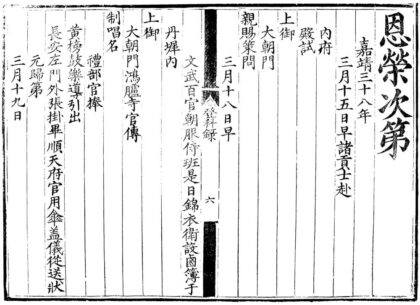 恩榮次第
嘉靖三十八年
三月十五日早諸貢士赴
内府
殿試
上御
大朝門
親賜策問
三月十八日早
登科錄
六
文武百官朝服侍班是日錦衣衛設鹵簿于
丹墀内
上御
大朝門鴻臚寺官傳
制唱名
禮部官捧
黃榜鼓樂導引出
長安左門外張掛畢順天府官用傘盖儀從送狀
元歸第
三月十九日